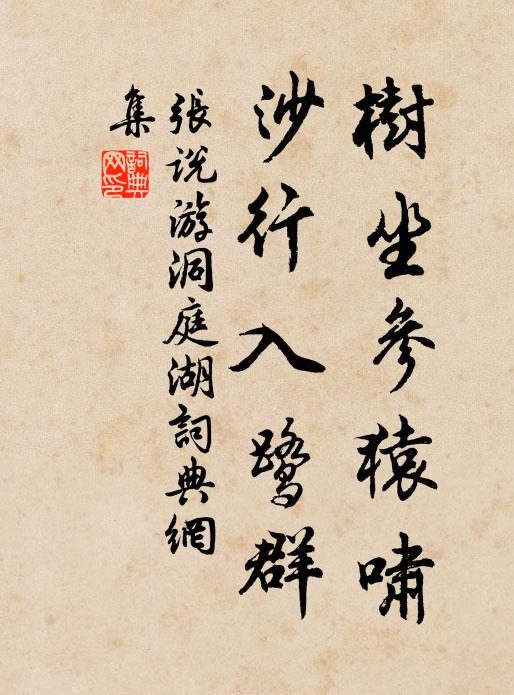 樹坐參猿嘯
沙行入鷺群
張說游洞庭湖詞典網
集
詞典網印